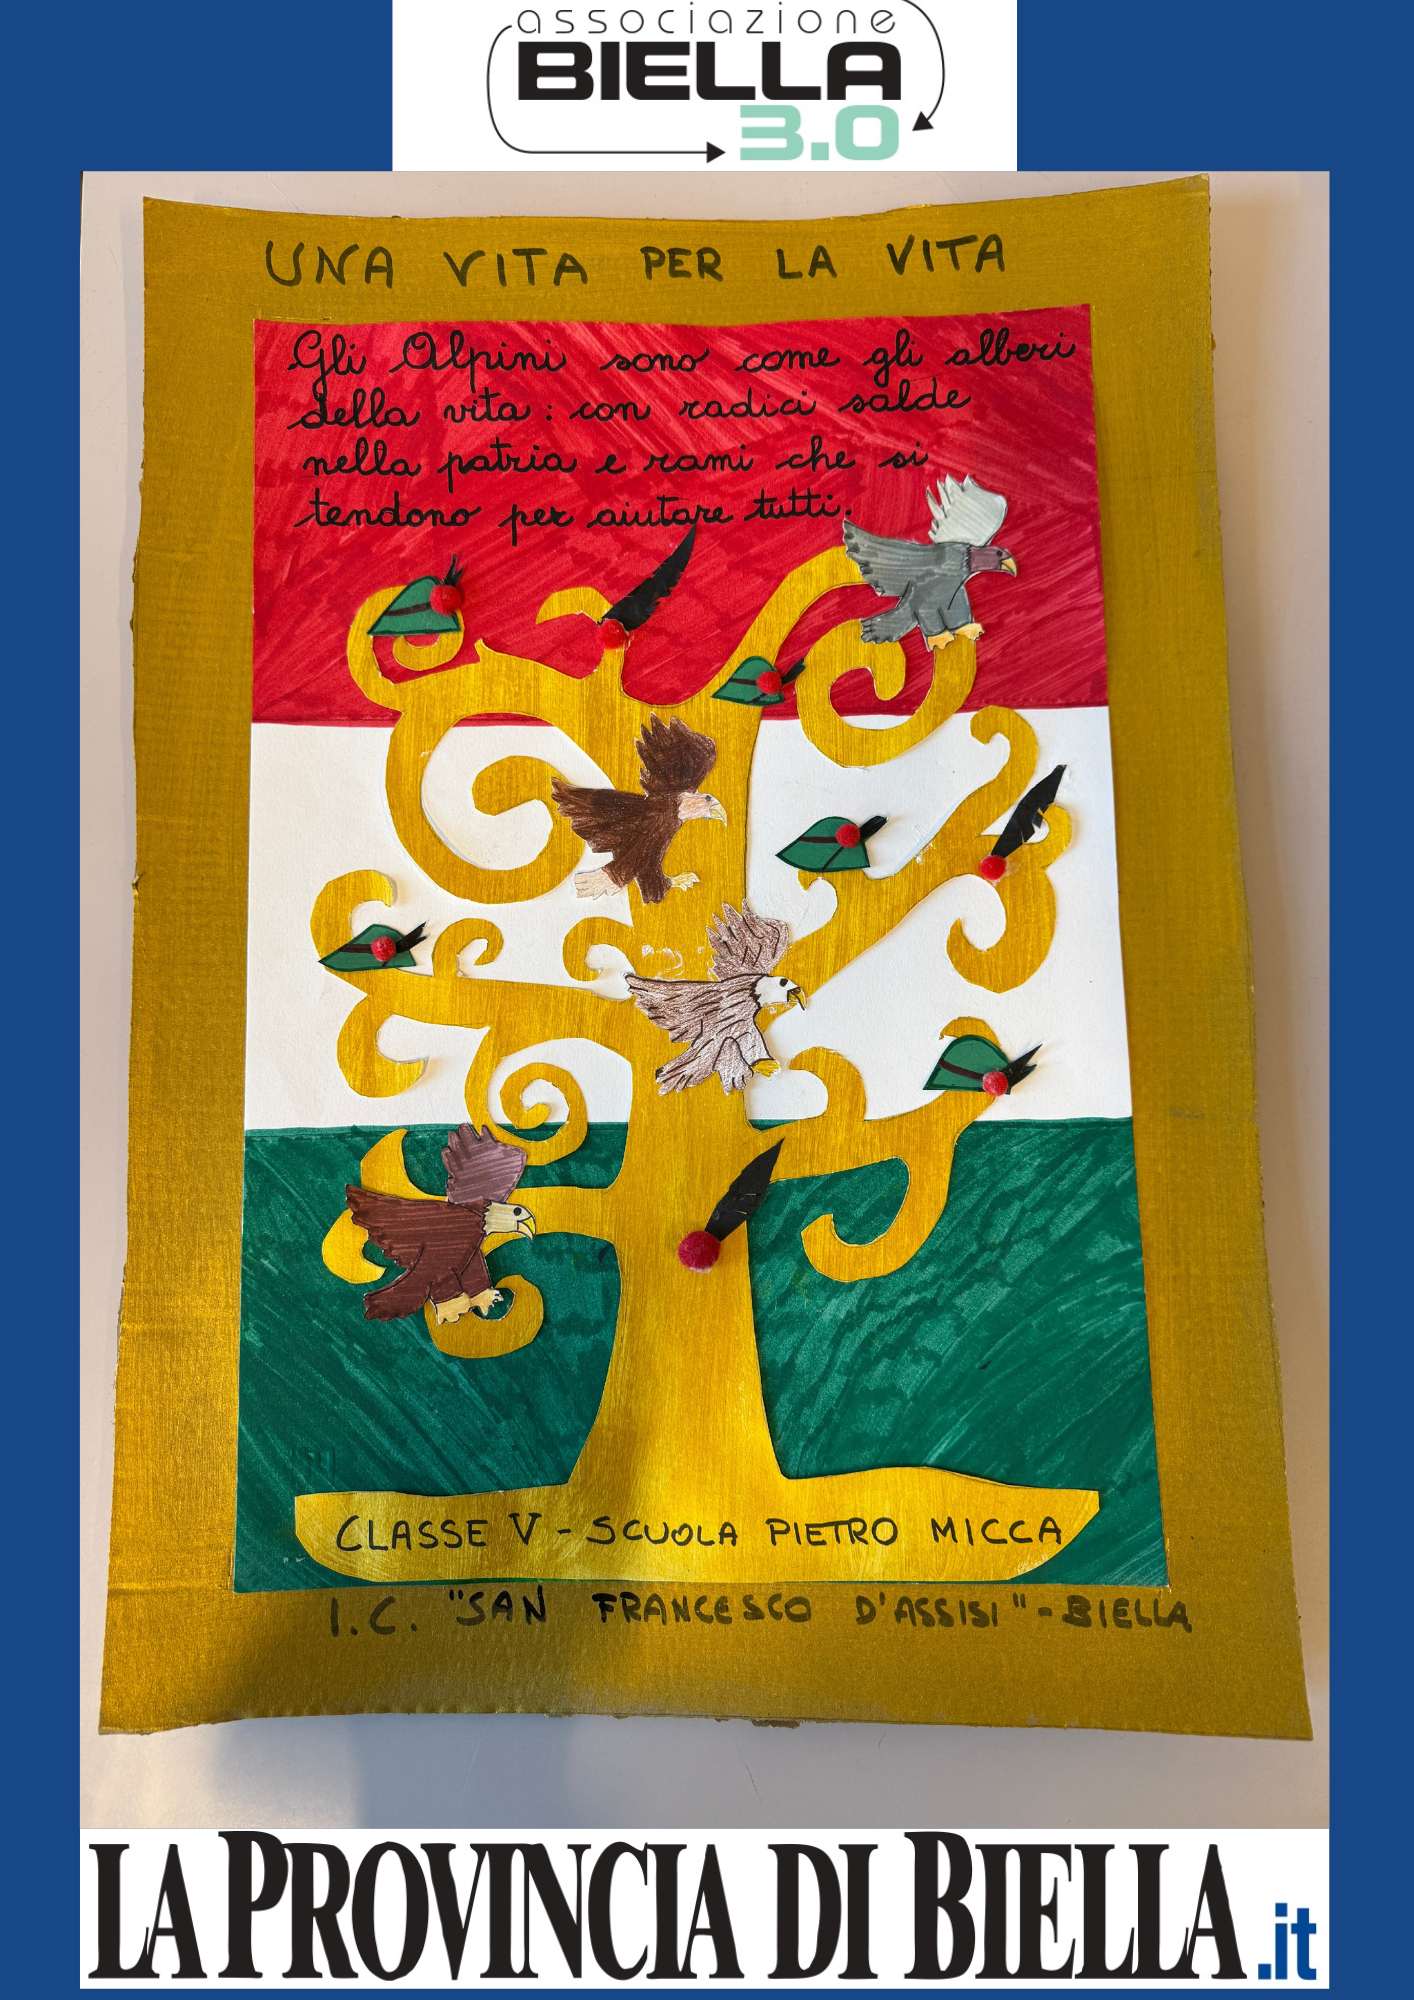 associazione
BIELLA
3.0
UNA VITA PER LA VITA
Gli Alpini sono come gli alberi
della vita: con radici salde
nella patria e rami che si
tendono per aiutare tutti.
CLASSE V - SCUOLA PIETRO MICCA
I.C. "SAN FRANCESCO D'ASSISI" - BIELLA
LA PROVINCIA DI BIELLA.it